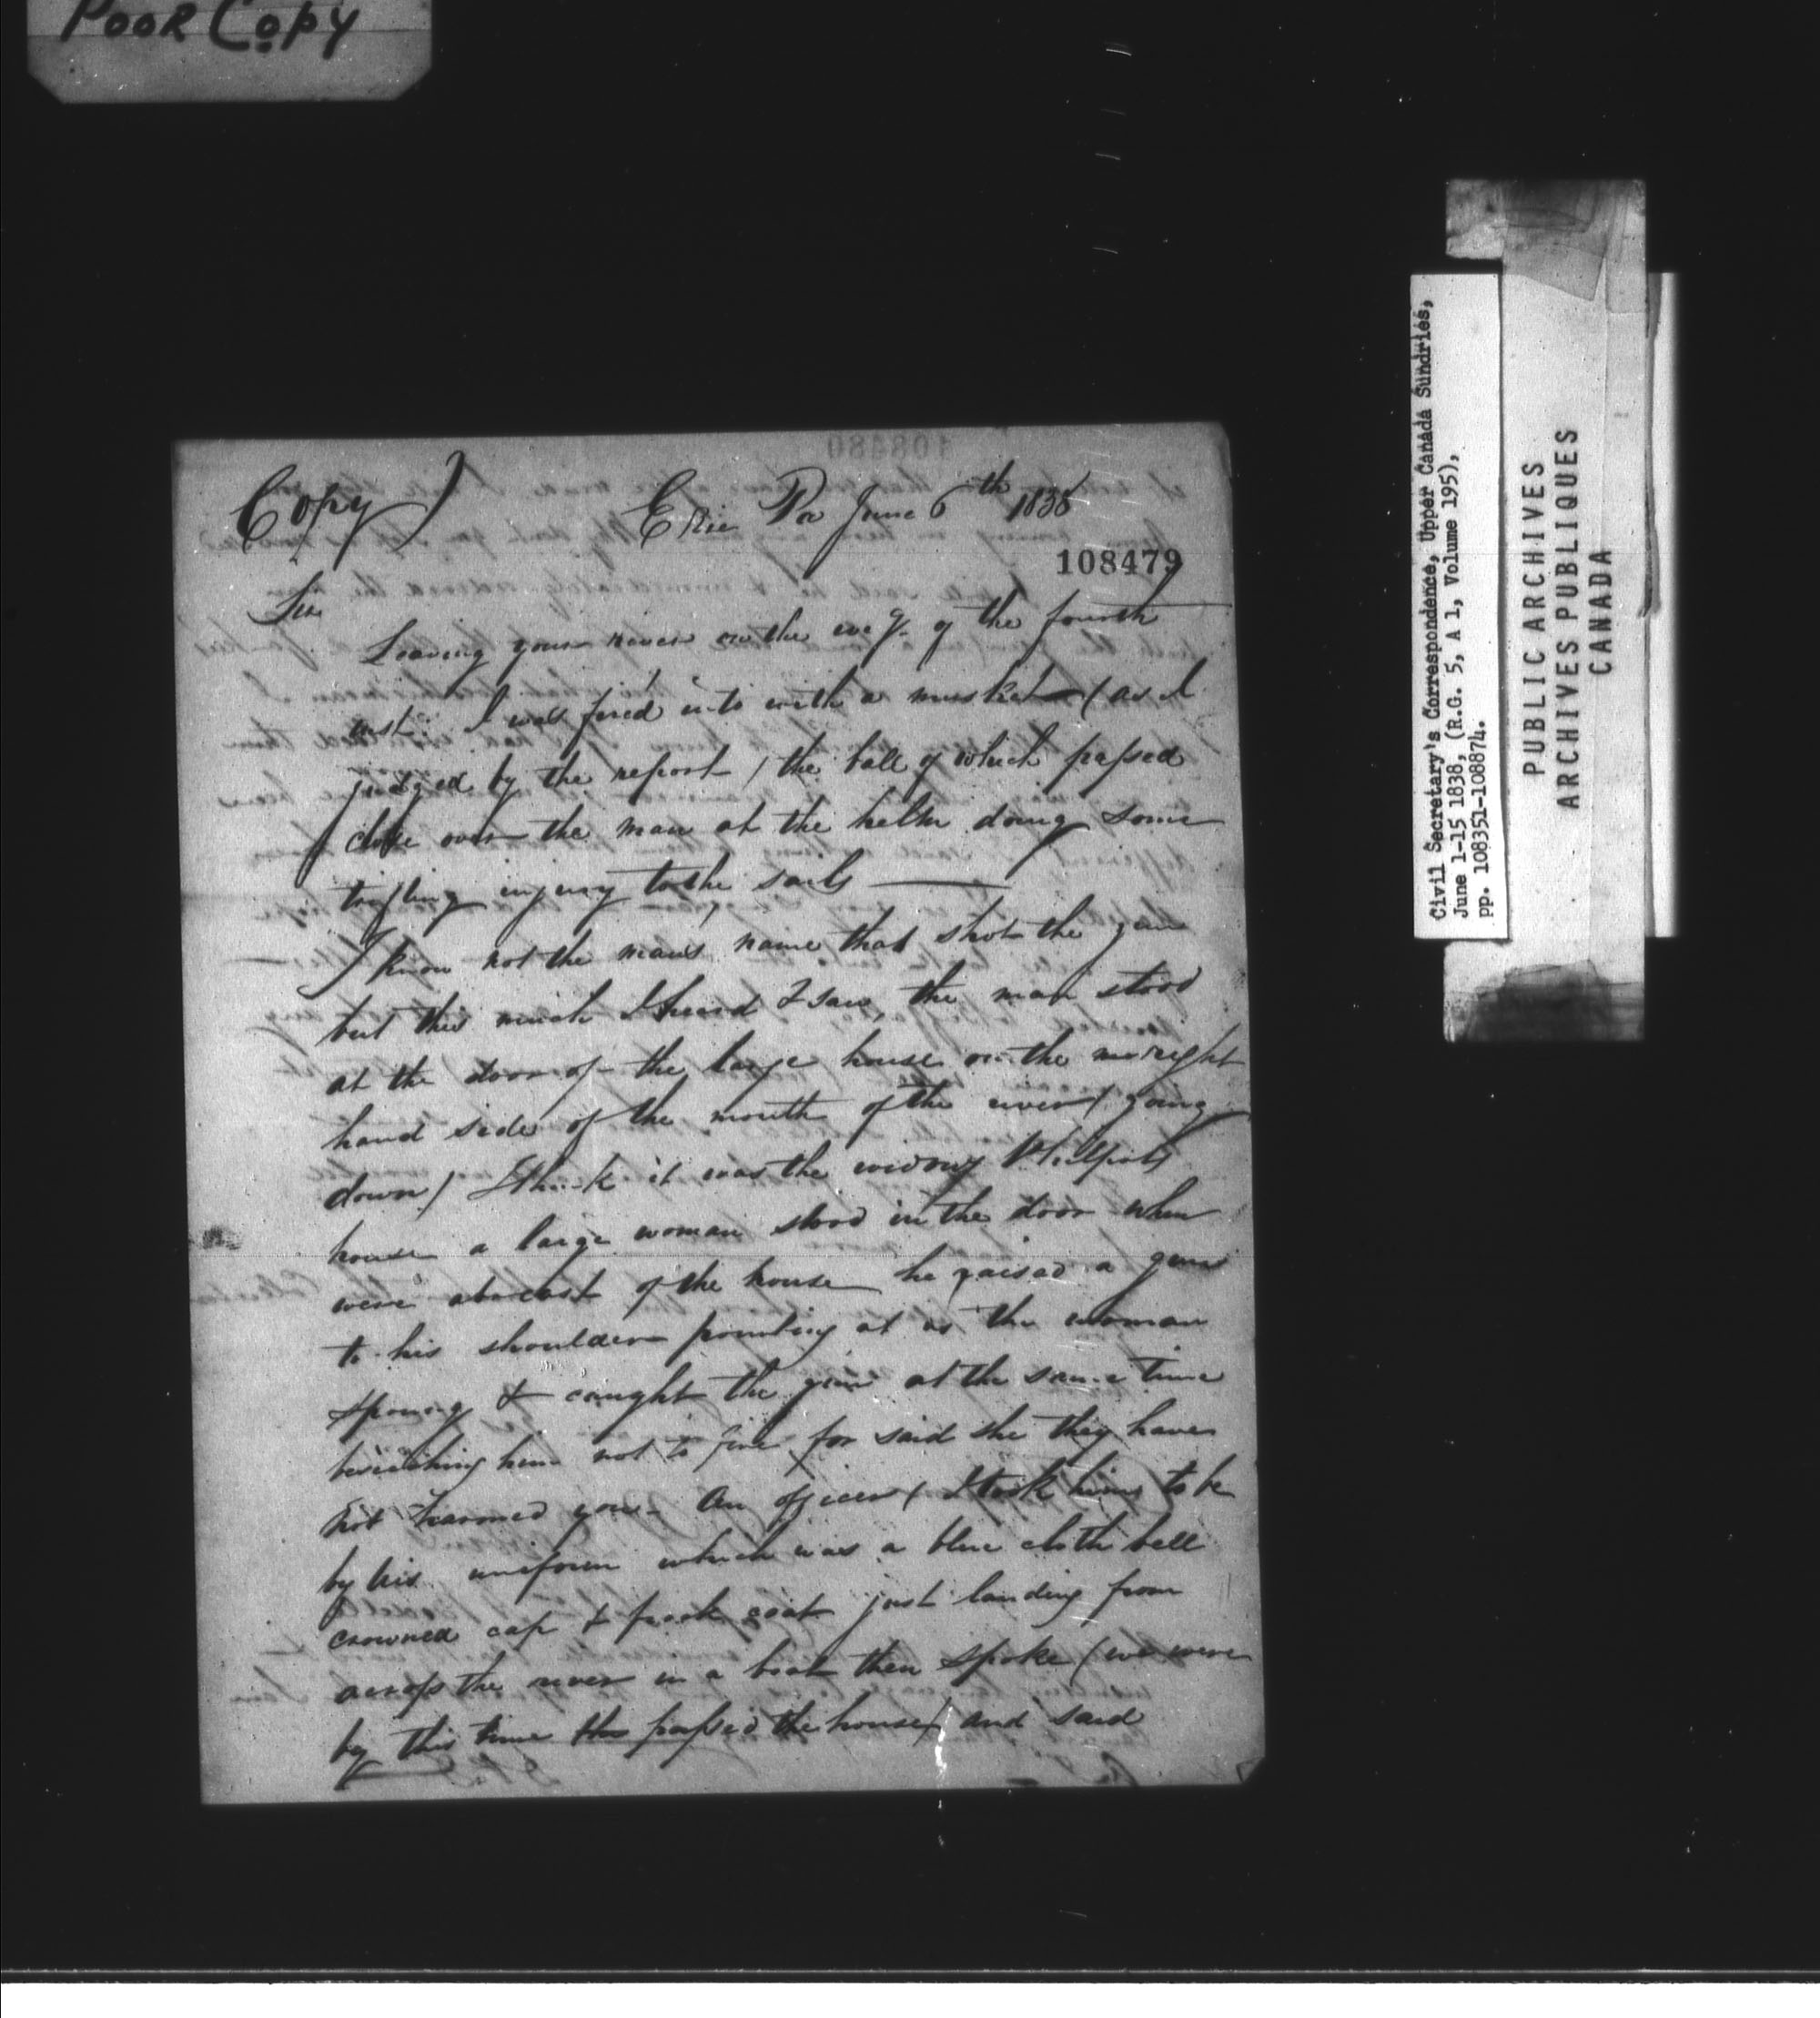 POOR COPY
Copy) Erie Pa June 6th 1838
108479
Sir
Leaving your river on the eveg. of the fourth
inst. I was fired into with a musket (as I
judged by the report) the ball of which passed
close over the man at the helm doing some
trifling injury to the sails
I know not the mans name that shot the gun
but this much I heard & saw, the man stood
at the door of the large house on the right
hand side of the mouth of the river (going
down) I think it was the widow
house a large woman stood in the door when
were abreast of the house he raised a gun
to his shoulder pointing at us the woman
sprung & caught the gun at the same time
beseeching him not to fire for said she they have
not harmed you. An officer (I took him to be
by his uniform which was a blue cloth bell
crowned cap & frock coat just landing from
across the river in a boat then spoke (we were
by this time tho passed the house) and said
Civil Secretary's Correspondence, Upper Canada Sundries,
June 1-15 1838, (R.G. 5, A 1, Volume 195),
pp. 108351-108874.
PUBLIC ARCHIVES
ARCHIVES PUBLIQUES
CANADA